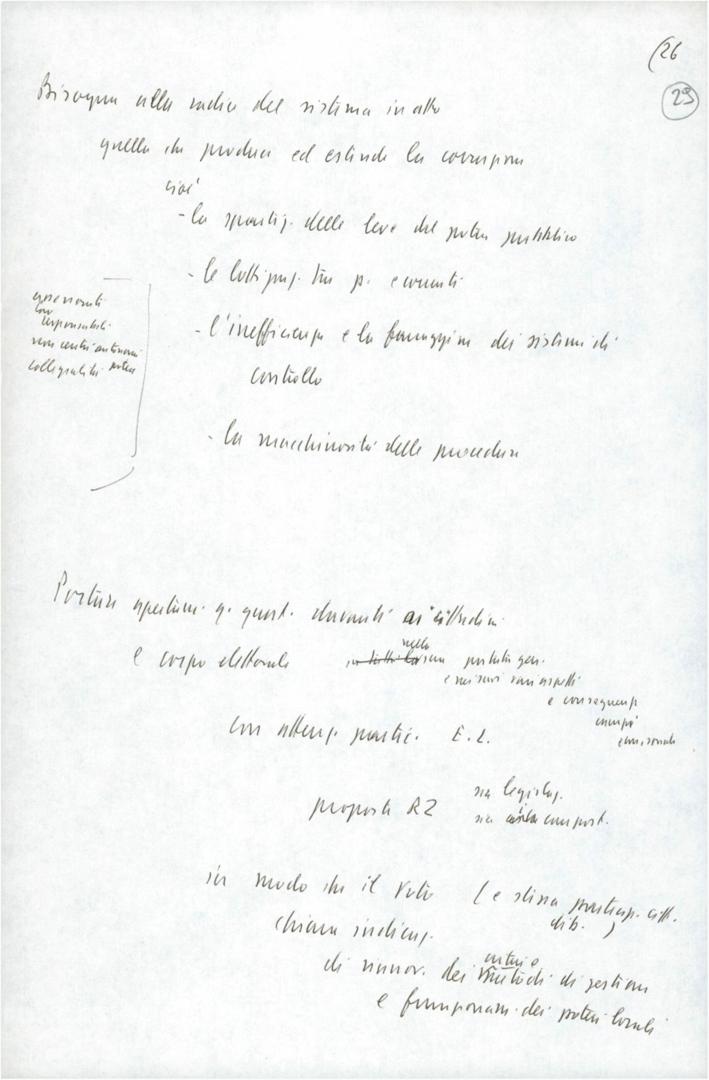 (26
29
Bisogna alla radice del sistema in atto
quella che produce ed estende la corruzione
cioè
- la spartiz. delle leve del potere pubblico
- le lottizzaz. tra p. e correnti
- l'inefficienza e la farraginu dei sistemi di
controllo
- la macchinosità delle procedure
assessorati
loro
responsabilità
veri centri autonomi
collegialità potere
Portare apertam. q. quest. davanti ai cittadini
e corpo elettorale nella sua portata gen.
e nei suoi vari aspetti
e conseguenze
con attenz. partic. E.L.
proposte RZ sia legislaz.
sia comport.
in modo che il voto (e stessa partecip. citt.
dib. )
chiara indicaz.
di rinnov. dei criteri e metodi di gestione
e funzionam. dei poteri locali